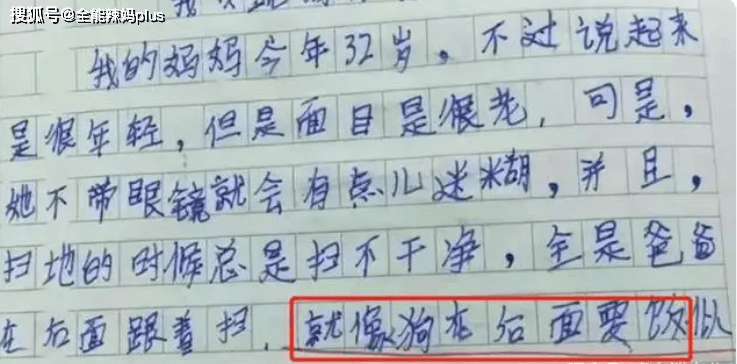 搜狐号@全能辣妈plus
我的妈妈今年32岁，不过说起来
是很年轻，但是面目是很老，可是，
她不带眼镜就会有点儿迷糊，并且，
扫地的时候总是扫不干净，全是爸爸
在后面跟着扫，就像狗在后面要饭似